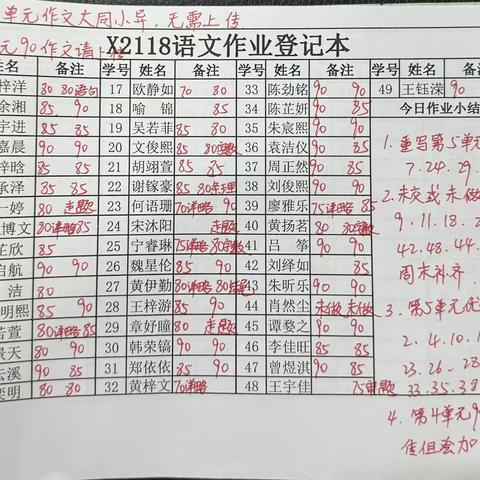 单元作文大同小异,无需上传
元90作文请上传
X2118语文作业登记本
姓名 备注 学号 姓名 备注 学号 姓名 备注 学号 姓名 备注
梓洋 80 80语句 17 欧静如 70 80 33 陈劲铭 90 90 49 王钰滢 90
余湘 85 90 18 喻锦 85 34 陈芷妍 90 85 今日作业小结
宇进 85 85 19 吴若菲 85 80 35 朱宸熙 90 90
嘉晨 90 90 20 文俊熙 85 80 36 袁洁仪 90 85 1. 重写第5单元
梓晗 85 85 21 胡翊萱 85 85 37 周正然 90 85 7.24.29.
承泽 85 85 22 谢镓豪 85 80 38 刘俊熙 90 90 2. 未交或未做
一婷 80 走题 23 何语珊 70详略 90 39 廖雅乐 75详略 85 9.11.18.2
博文 80详略 85 24 宋沐阳 走题 40 黄扬茗 80 80
芷欣 85 25 宁睿琳 75详略 80 41 吕筝 90 90 42.48.44.
启航 90 90 26 魏星伦 85 90 42 刘绎如 85 周末补齐
洁 80 27 黄伊勤 80详略 80 43 朱昕乐 90 90
明熙 85 90 28 王梓游 85 90 44 肖然尘 未做 未做 3. 第5单元优
若萱 80详略 85 29 章好瞳 80 走题 45 谭婺之 90 90 2.4.10.1
景天 80 90 30 韩荣镐 90 90 46 李佳旺 85 85
云溪 90 85 31 郑依依 85 90 47 曾煜淇 90 85 23.26.28
奕明 80 80 32 黄梓文 70详略 48 王宇佳 75审题 33.35.38
4. 第4单元9
传组会加